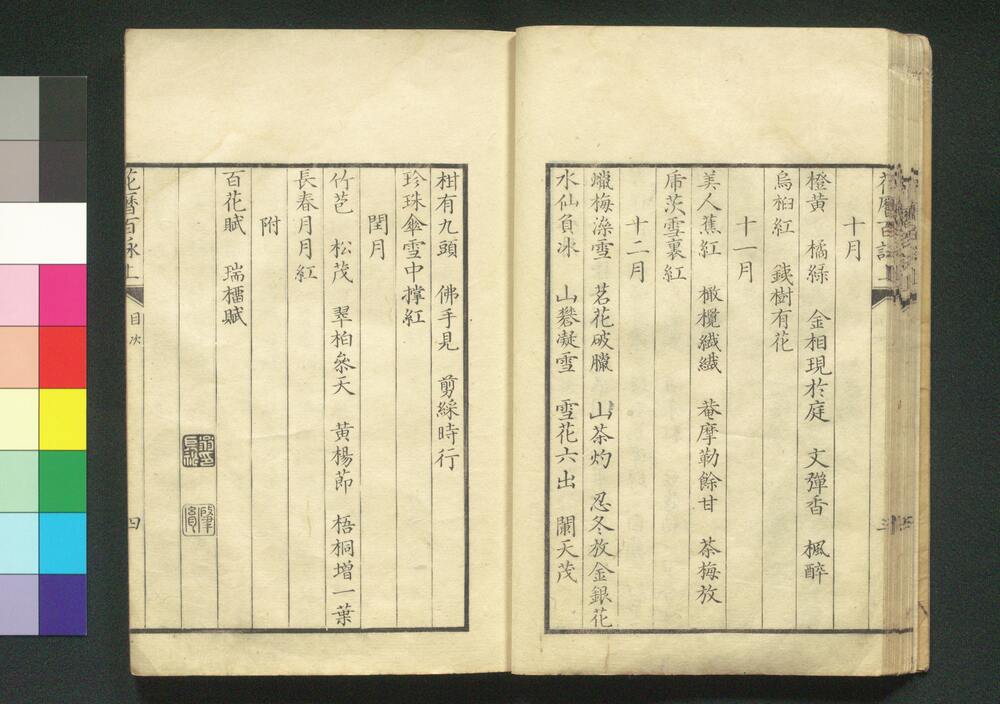 十月
橙黄 橘緑 金相現於庭 文彈香 楓醉
烏桕紅 鐵樹有花
十一月
美人蕉紅 橄欖纖纖 菴摩勒餘甘 茶梅放
乕茨雪裏紅
十二月
蠟梅染雪 茗花破臘 山茶灼 忍冬放金銀花
水仙負冰 山礬凝雪 雪花六出 闌天茂
柑有九頭 佛手見 剪綵時行
珍珠傘雪中撑紅
閏月
竹苞 松茂 翠柏叅天 黄楊節 梧桐增一葉
長春月月紅
附
百花賦 瑞橊賦
花曆百詠上 目次 四